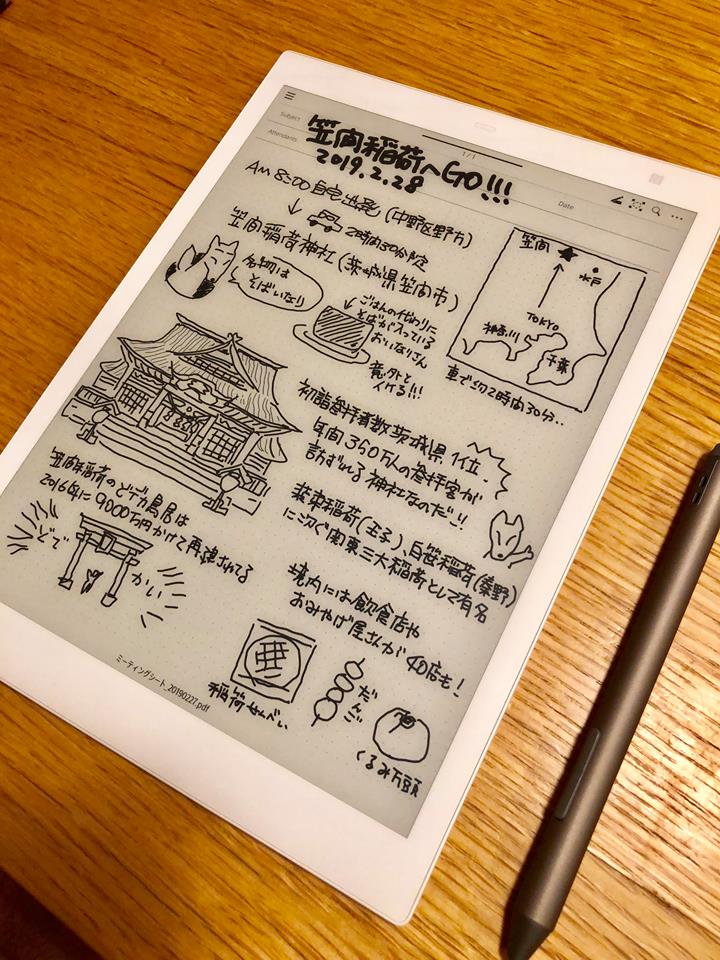 Subject
笠間稲荷へGO!!!
Attendants
1/1
2019.2.28
Date
AM 8:00 自宅出発(中野区野方)
↓ 2時間30分位
笠間稲荷神社(茨城県笠間市)
名物は
そばいなり
ごはんの代わりに
そばが入っている
おいなりさん
意外と
イける!!!
笠間
水戸
TOKYO
神奈川
千葉
車で約2時間30分..
初詣参拝者数茨城県1位.
年間350万人の参拝客が
訪ずれる神社なのだ!!
装束稲荷(王子)、白笹稲荷(秦野)
に次ぐ関東三大稲荷として有名
笠間稲荷のどデカ鳥居は
2016年に9000万円かけて再建されてる
どで
かい
境内には飲食店や
おみやげ屋さんが40店も!
稲荷せんべい
だんご
くるみ万頭
ミーティングシート_20190227.pdf